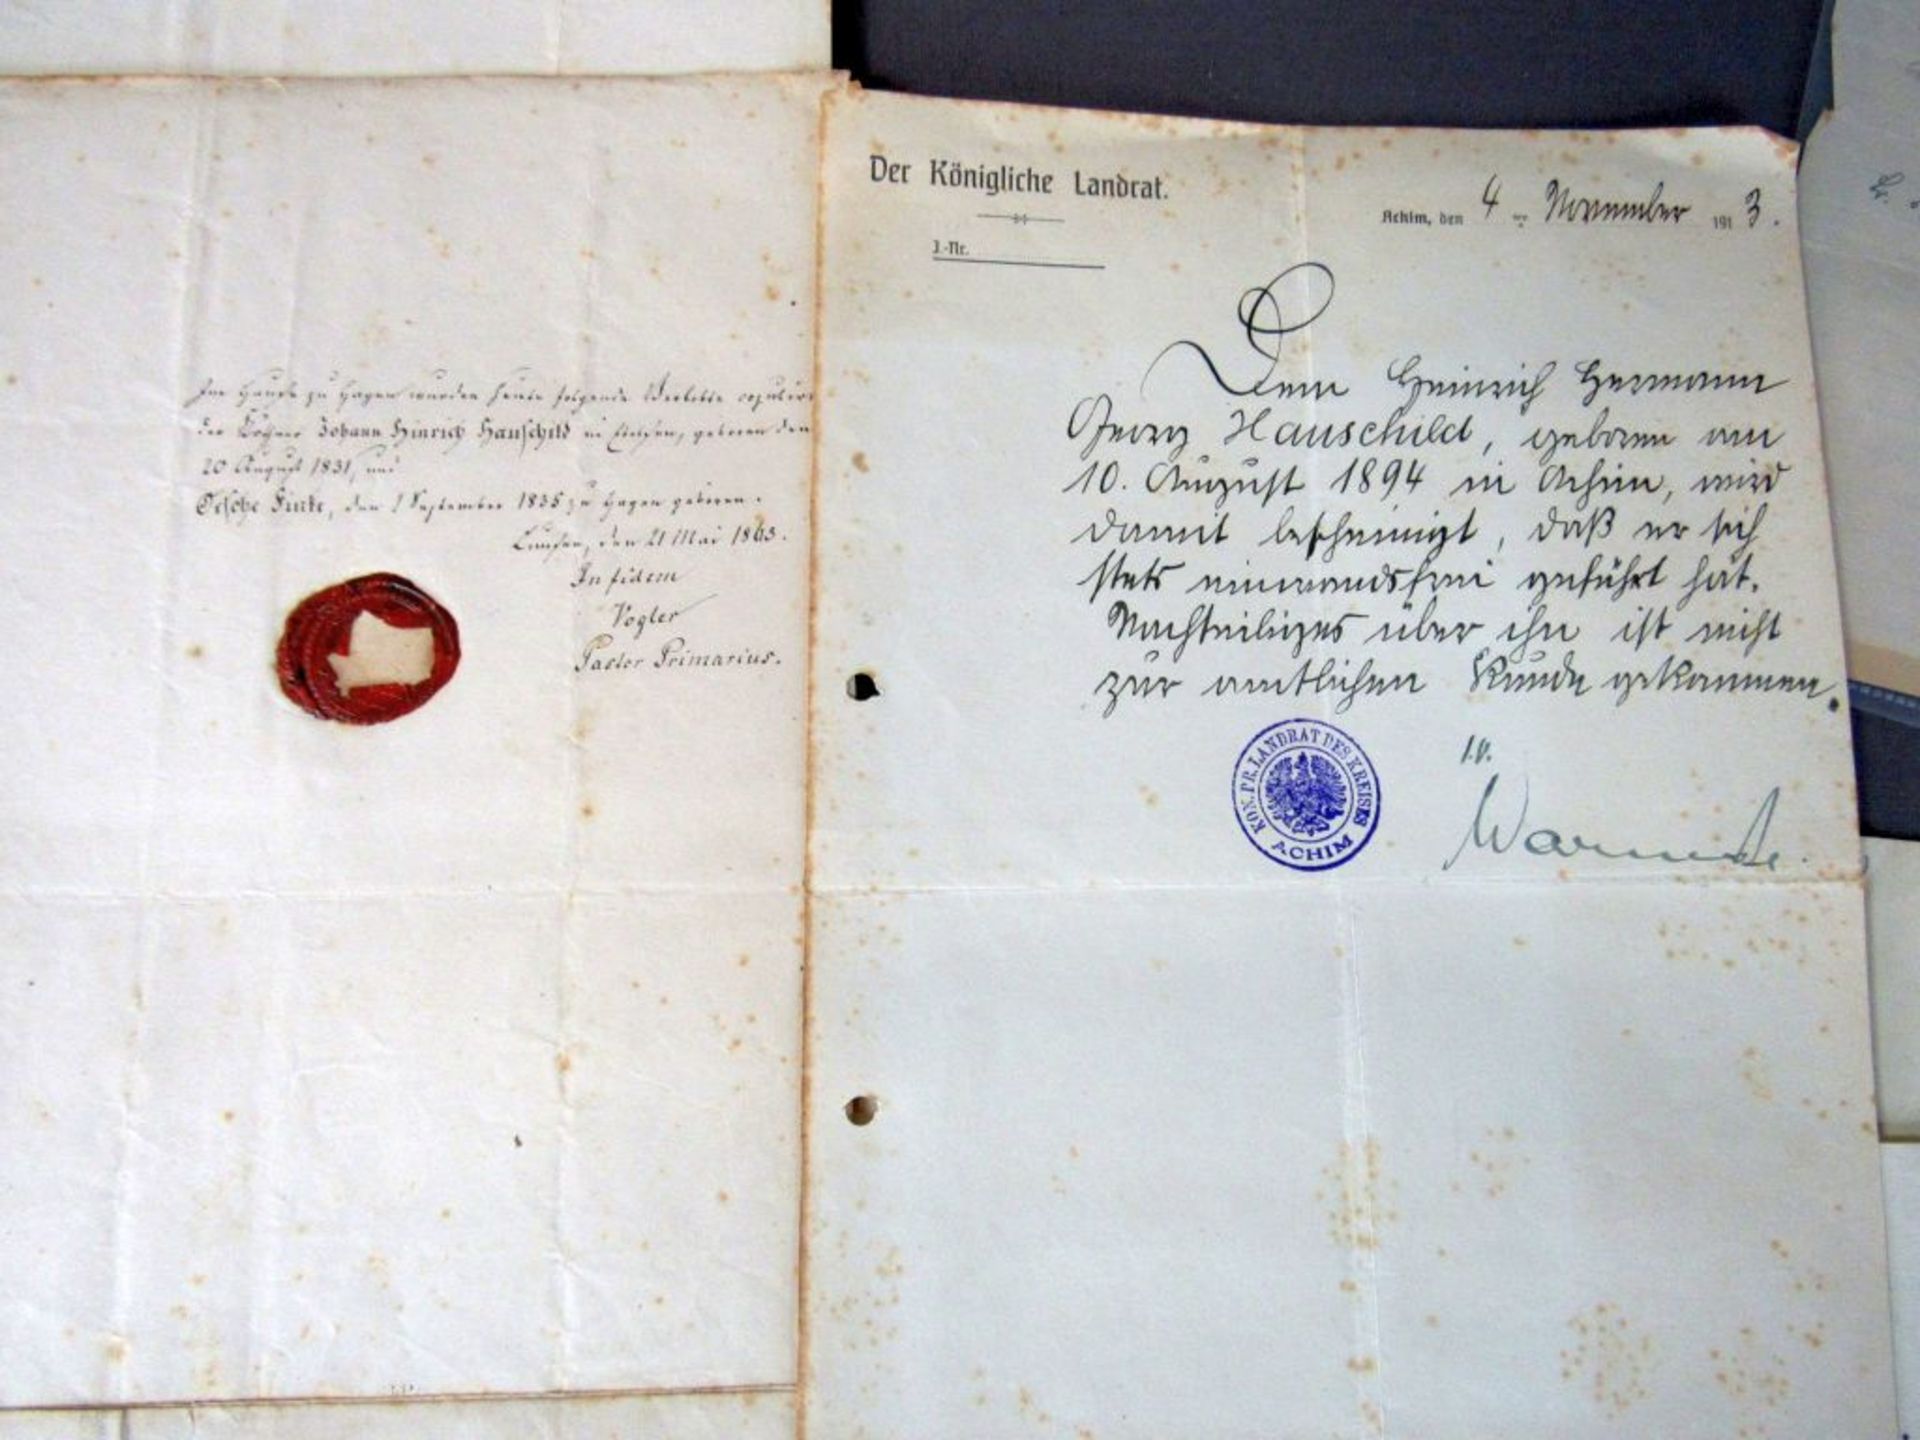 Im Hause zu Hagen wurden heute folgende Verlobte copulirt
der Köthner Johann Hinrich Hauschild in, geboren den
20 August 1831, und
Gesche Finke, den 1 September 1835 zu Hagen geboren.
den 21 Mai 1863.
In fidem
Vogler
Pastor Primarius.
Der Königliche Landrat.
J.-Nr.
Achim, den 4 ten November 1913.
Dem Heinrich Hermann
Georg Hauschild, geboren am
10. August 1894 in Achim, wird
damit bescheinigt, daß er sich
stets einwandsfrei geführt hat.
Nachteiliges über ihn ist nicht
zur amtlichen Kunde gekommen.
I.V.
KÖN. PR. LANDRAT DES KREISES
ACHIM